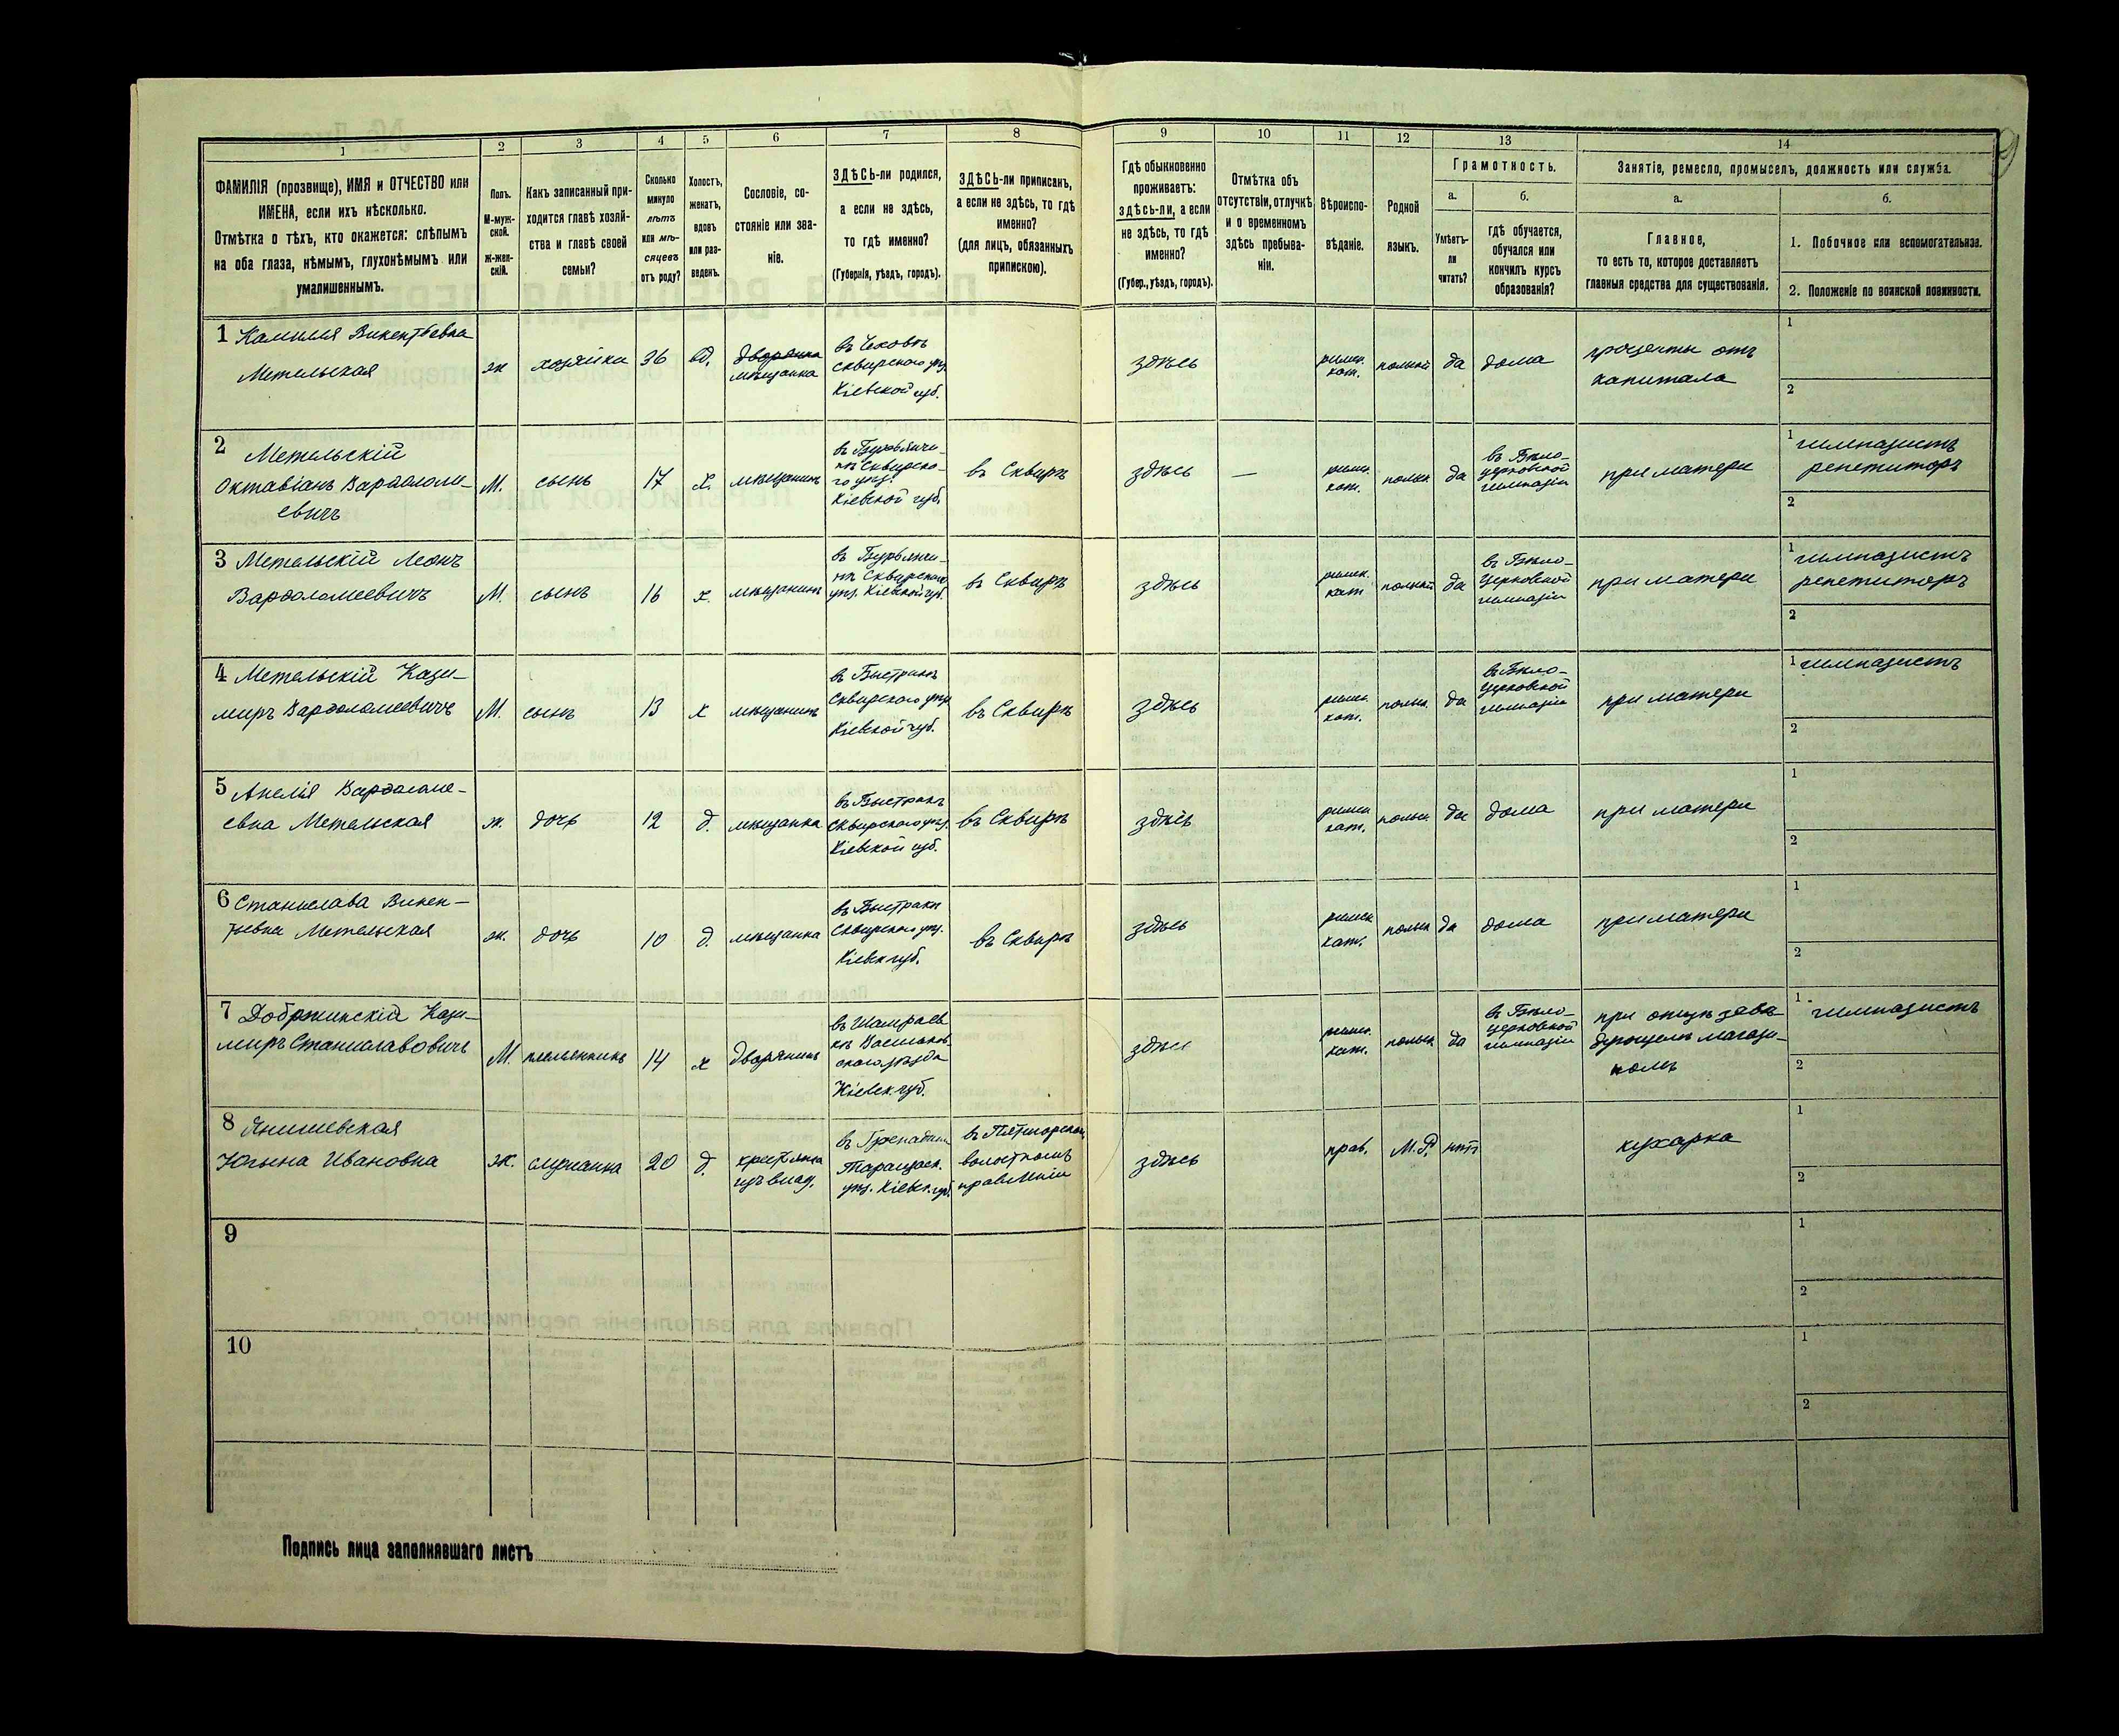 1
2
3
4
5
6
7
8
9
10
11
12
13
14
ФАМИЛІЯ (прозвище), ИМЯ и ОТЧЕСТВО или
ИМЕНА, если ихъ нѣсколько.
Отмѣтка о тѣхъ, кто окажется: слѣпымъ
на оба глаза, нѣмымъ, глухонѣмымъ или
умалишеннымъ.
Полъ.
М-муж-
ской.
Ж-жен-
скій.
Какъ записанный при-
ходится главѣ хозяй-
ства и главѣ своей
семьи?
Сколько
минуло
лѣтъ
или мѣ-
сяцевъ
отъ роду?
Холостъ,
женатъ,
вдовъ
или раз-
веденъ.
Сословіе, со-
стояніе или зва-
ніе.
ЗДѢСЬ-ли родился,
а если не здѣсь,
то гдѣ именно?
(Губернія, уѣздъ, городъ).
ЗДѢСЬ-ли приписанъ,
а если не здѣсь, то гдѣ
именно?
(для лицъ, обязанныхъ
припискою).
Гдѣ обыкновенно
проживаетъ:
здѣсь-ли, а если
не здѣсь, то гдѣ
именно?
(Губер., уѣздъ, городъ).
Отмѣтка объ
отсутствіи, отлучкѣ
и о временномъ
здѣсь пребыва-
ніи.
Вѣроиспо-
вѣданіе.
Родной
языкъ.
Грамотность.
а.
Умѣетъ-
ли
читать?
б.
гдѣ обучается,
обучался или
кончилъ курсъ
образованія?
Занятіе, ремесло, промыселъ, должность или служба.
а.
Главное,
то есть то, которое доставляетъ
главныя средства для существованія.
б.
1. Побочное или вспомогательное.
2. Положеніе по воинской повинности.
1 Камилия Викентьевна
Метельская
ж
хозяйка
36
вд.
дворянка
мѣщанка
сквирского уѣз.
Кіевской губ.
здѣсь
римск.
кат.
польскій
да
дома
проценты отъ
капитала
1
2
2 Метельскій
Октавіанъ Варѳоломе-
евичъ
М.
сынъ
17
х.
мѣщанинъ
въ Бурковчи-
нѣ Сквирско-
го уѣз.
Кіевской губ.
въ Сквирѣ
здѣсь
—
римск.
кат.
польск
да
въ Бѣло-
церковской
гимназіи
при матери
1 гимназистъ
репетиторъ
2
3 Метельскій Леонъ
Варѳоломеевичъ
М.
сынъ
16
х.
мѣщанинъ
нѣ Сквирского
уѣз. Кіевской губ.
въ Сквирѣ
здѣсь
римск.
кат
польскій
да
въ Бѣло-
церковской
гимназіи
при матери
1 гимназистъ
репетиторъ
2
4 Метельскій Кази-
миръ Варѳоломеевичъ
М.
сынъ
13
х
мѣщанинъ
въ Быстрикѣ
Сквирского уѣз.
Кіевской губ.
въ Сквирѣ
здѣсь
римск.
кат.
польск.
да
въ Бѣло-
церковской
гимназіи
при матери
1 гимназистъ
2
5 Анелія Варѳоломе-
евна Метельская
ж.
дочь
12
д.
мѣщанка
въ Быстрикѣ
Сквирского уѣз.
Кіевской губ.
въ Сквирѣ
здѣсь
римск.
кат.
польск.
да
дома
при матери
1
2
6 Станислава Викен-
тьевна Метельская
ж.
дочь
10
д.
мѣщанка
въ Быстрикѣ
Сквирского уѣз.
Кіевск губ.
въ Сквирѣ
здѣсь
римск
кат.
польск
да
дома
при матери
1
2
7 Добржинскій Кази-
миръ Станиславовичъ
М.
племянникъ
14
х
дворянинъ
въ Шамраев
кѣ Васильков
ского уѣзда
Кіевск. губ.
здѣсь
римск.
кат.
польск
да
въ Бѣло-
церковской
гимназіи
при отцѣ завѣ-
дующемъ магази-
номъ
1 гимназистъ
2
8 Янишевская
Югьина Ивановна
ж.
служанка
20
д.
крестьянка
изъ влад.
Таращан.
уѣз. Кіевск. губ.
въ Пятигорском
волостномъ
правленіи
здѣсь
прав.
М.Р.
нѣтъ
кухарка
1
2
9
1
2
10
1
2
Подпись лица заполнявшаго листъ